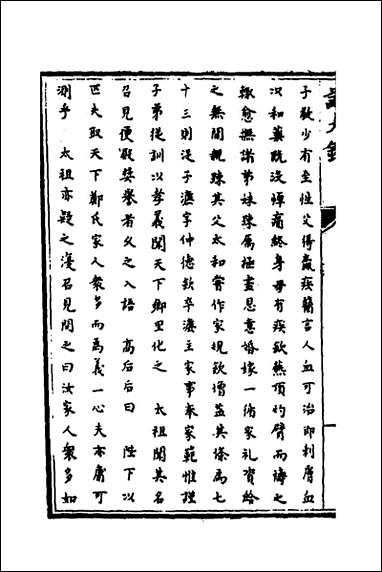 子欽少有至性父得羸疾醫言人血可治即刺膚血
況和藥既沒悼痛終身母有疾欽爇頂灼臂而禱之
輒愈撫諸弟妹踈屬極盡恩意婚嫁一循家礼資給
之無閒親踈其父太和嘗作家規欽增益其條為七
十三則從子濂字仲德欽卒濂主家事奉家範惟謹
子弟從訓以孝義聞天下鄉里化之　太祖聞其名
召見便殿奬譽者久之入語　高后后曰　陛下以
匹夫取天下鄭氏家人衆多而為義一心夫亦庸可
測乎　太祖亦疑之漫召見問之曰汝家人衆多如